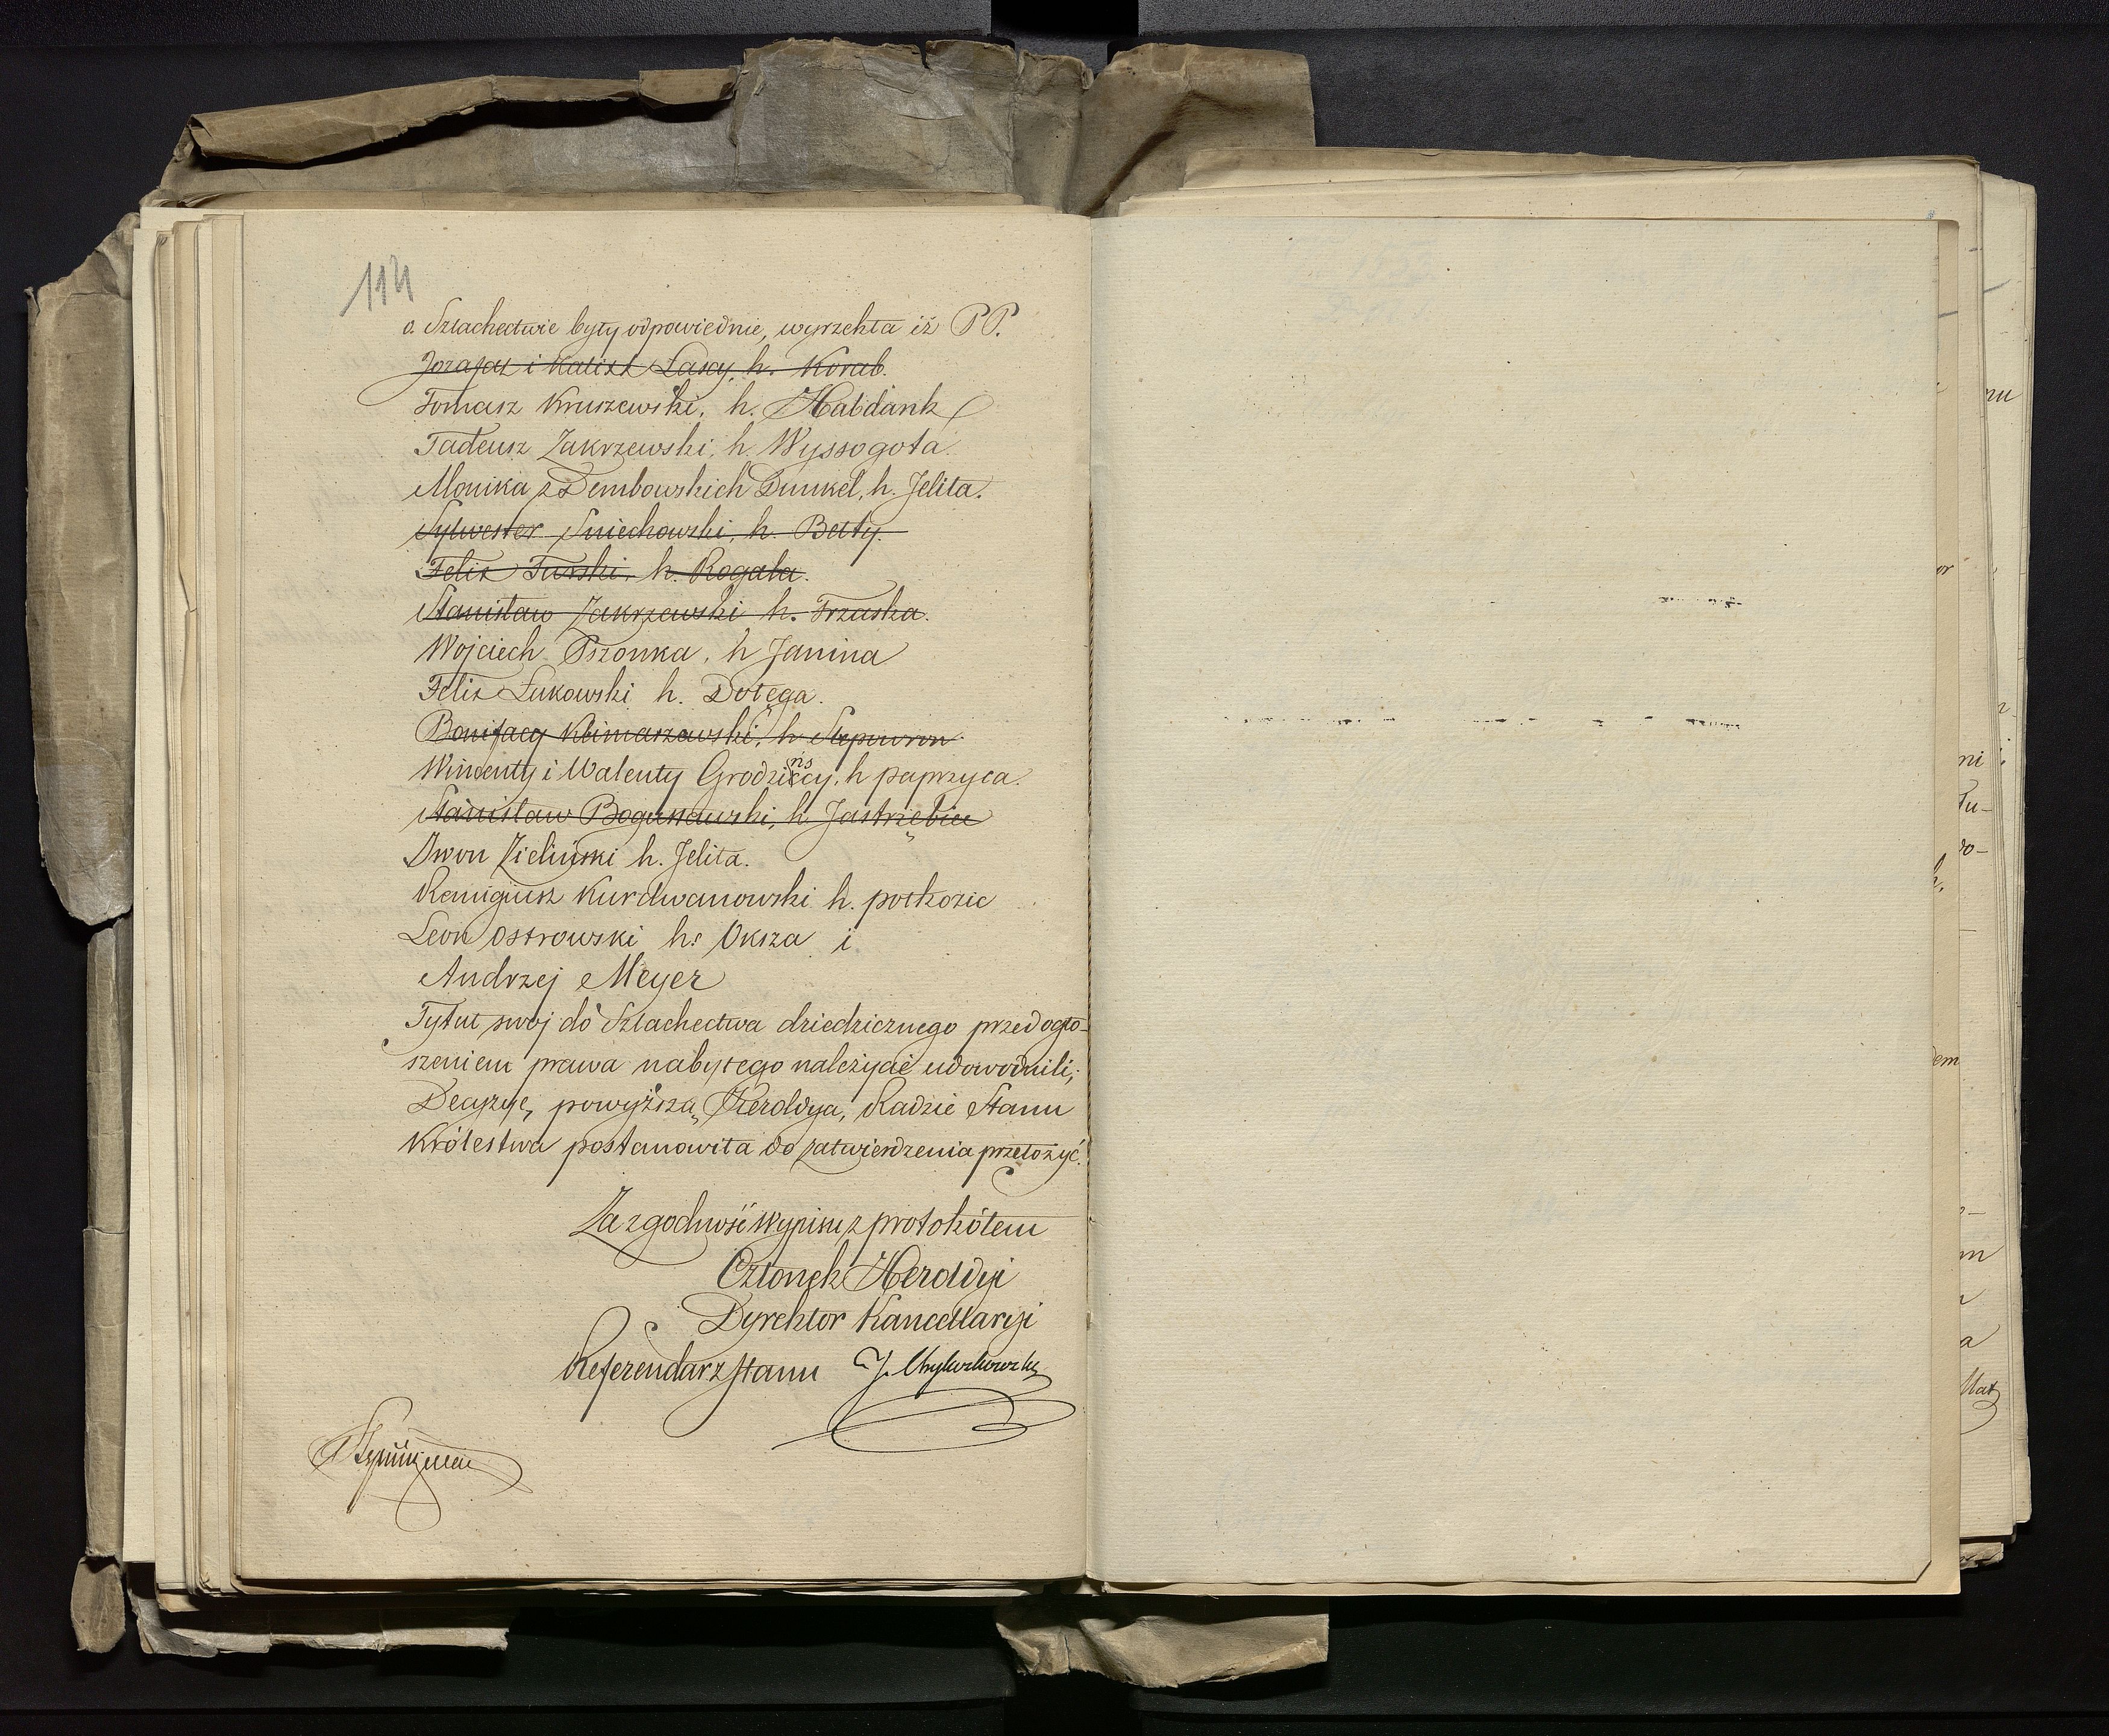 114
o Szlachectwie były odpowiednie, wyrzekła iż PP.
Jozafat i Kalixt Łascy, h. Korab.
Tomasz Kruszewski, h. Habdank
Tadeusz Zakrzewski, h. Wyssogota
Monika z Dembowskich Dunkel, h. Jelita.
Sylwester Sniechowski, h. Bełty.
Felix Turski, h. Rogala.
Stanisław Zakrzewski h. Trzaska.
Wojciech Pszonka, h Janina
Felix Łukowski h. Dołęga.
Bonifacy Klimaszewski, h Slepowron
Wincenty i Walenty Grodzinscy, h paprzyca.
Stanisław Bogusławski, h. Jastrzębiec
Iwon Zieliński h. Jelita.
Remigiusz Kurdwanowski h. połkozic
Leon Ostrowski h. Oksza i
Andrzej Meyer
Tytuł swój do Szlachectwa dziedzicznego przed ogło-
szeniem prawa nabytego należycie udowodnili;
Decyzyę, powyższą Heroldya, Radzie Stanu
Królestwa postanowiła do zatwierdzenia przełożyć.
Za zgodność Wypisu z protokółem
Członek Heroldyi
Dyrektor Kancellaryi
Referendarz Stanu J.
nu
or
ni
Tu-
ro-
h.
dem
m
a